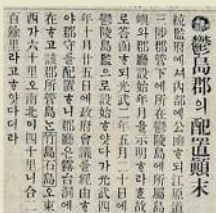 ●鬱島郡의 配置顚末
統監府에셔內部에公函하되江原道
三陟郡管下에所在鬱陵島에所屬島
嶼와郡廳設始年月을示明하라하故
로答函하되光武二年五月二十日에
鬱陵島監으로設始하얏다가光武四
年十月廿五日에政府會議를經由하
야郡守를配置하니郡廳은霧台洞에
在하고該郡所管島난竹島石島오東
西가六十里오南北이四十里니合二
百餘里라고하얏다더라